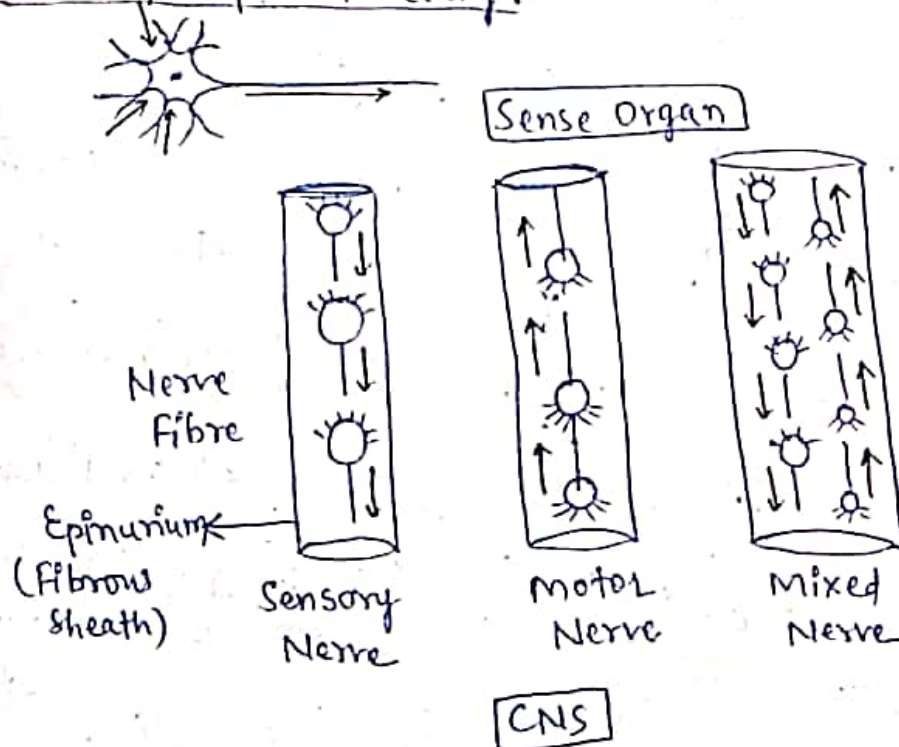 Sense Organ
Nerve
Fibre
Epinurium
(Fibrous
Sheath)
Sensory
Nerve
Motor
Nerve
Mixed
Nerve
CNS